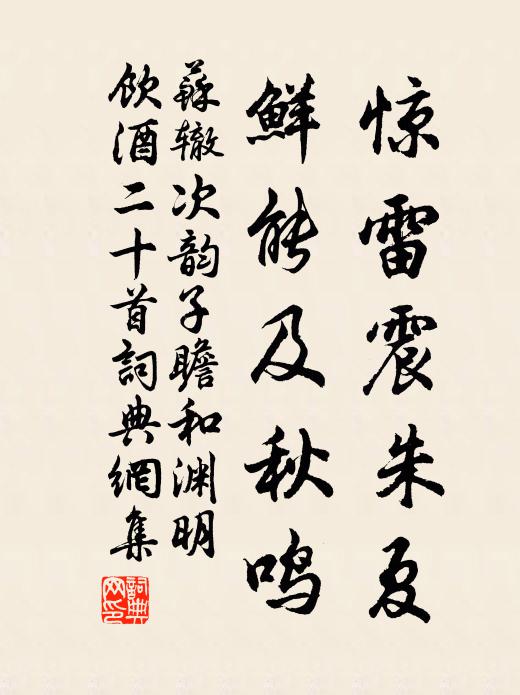 惊雷震朱夏
鲜能及秋鸣
蘇辙次韵子瞻和渊明
飲酒二十首詞典網集
詞典网印